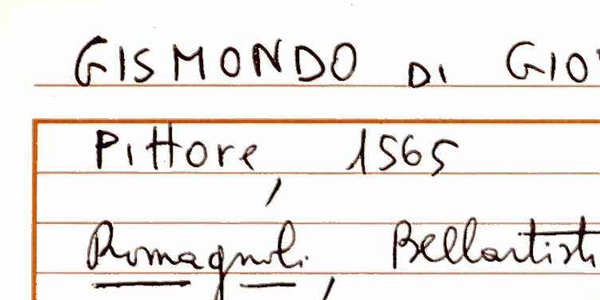 GISMONDO DI GIO
Pittore, 1565
Romagnoli, Bellartisti